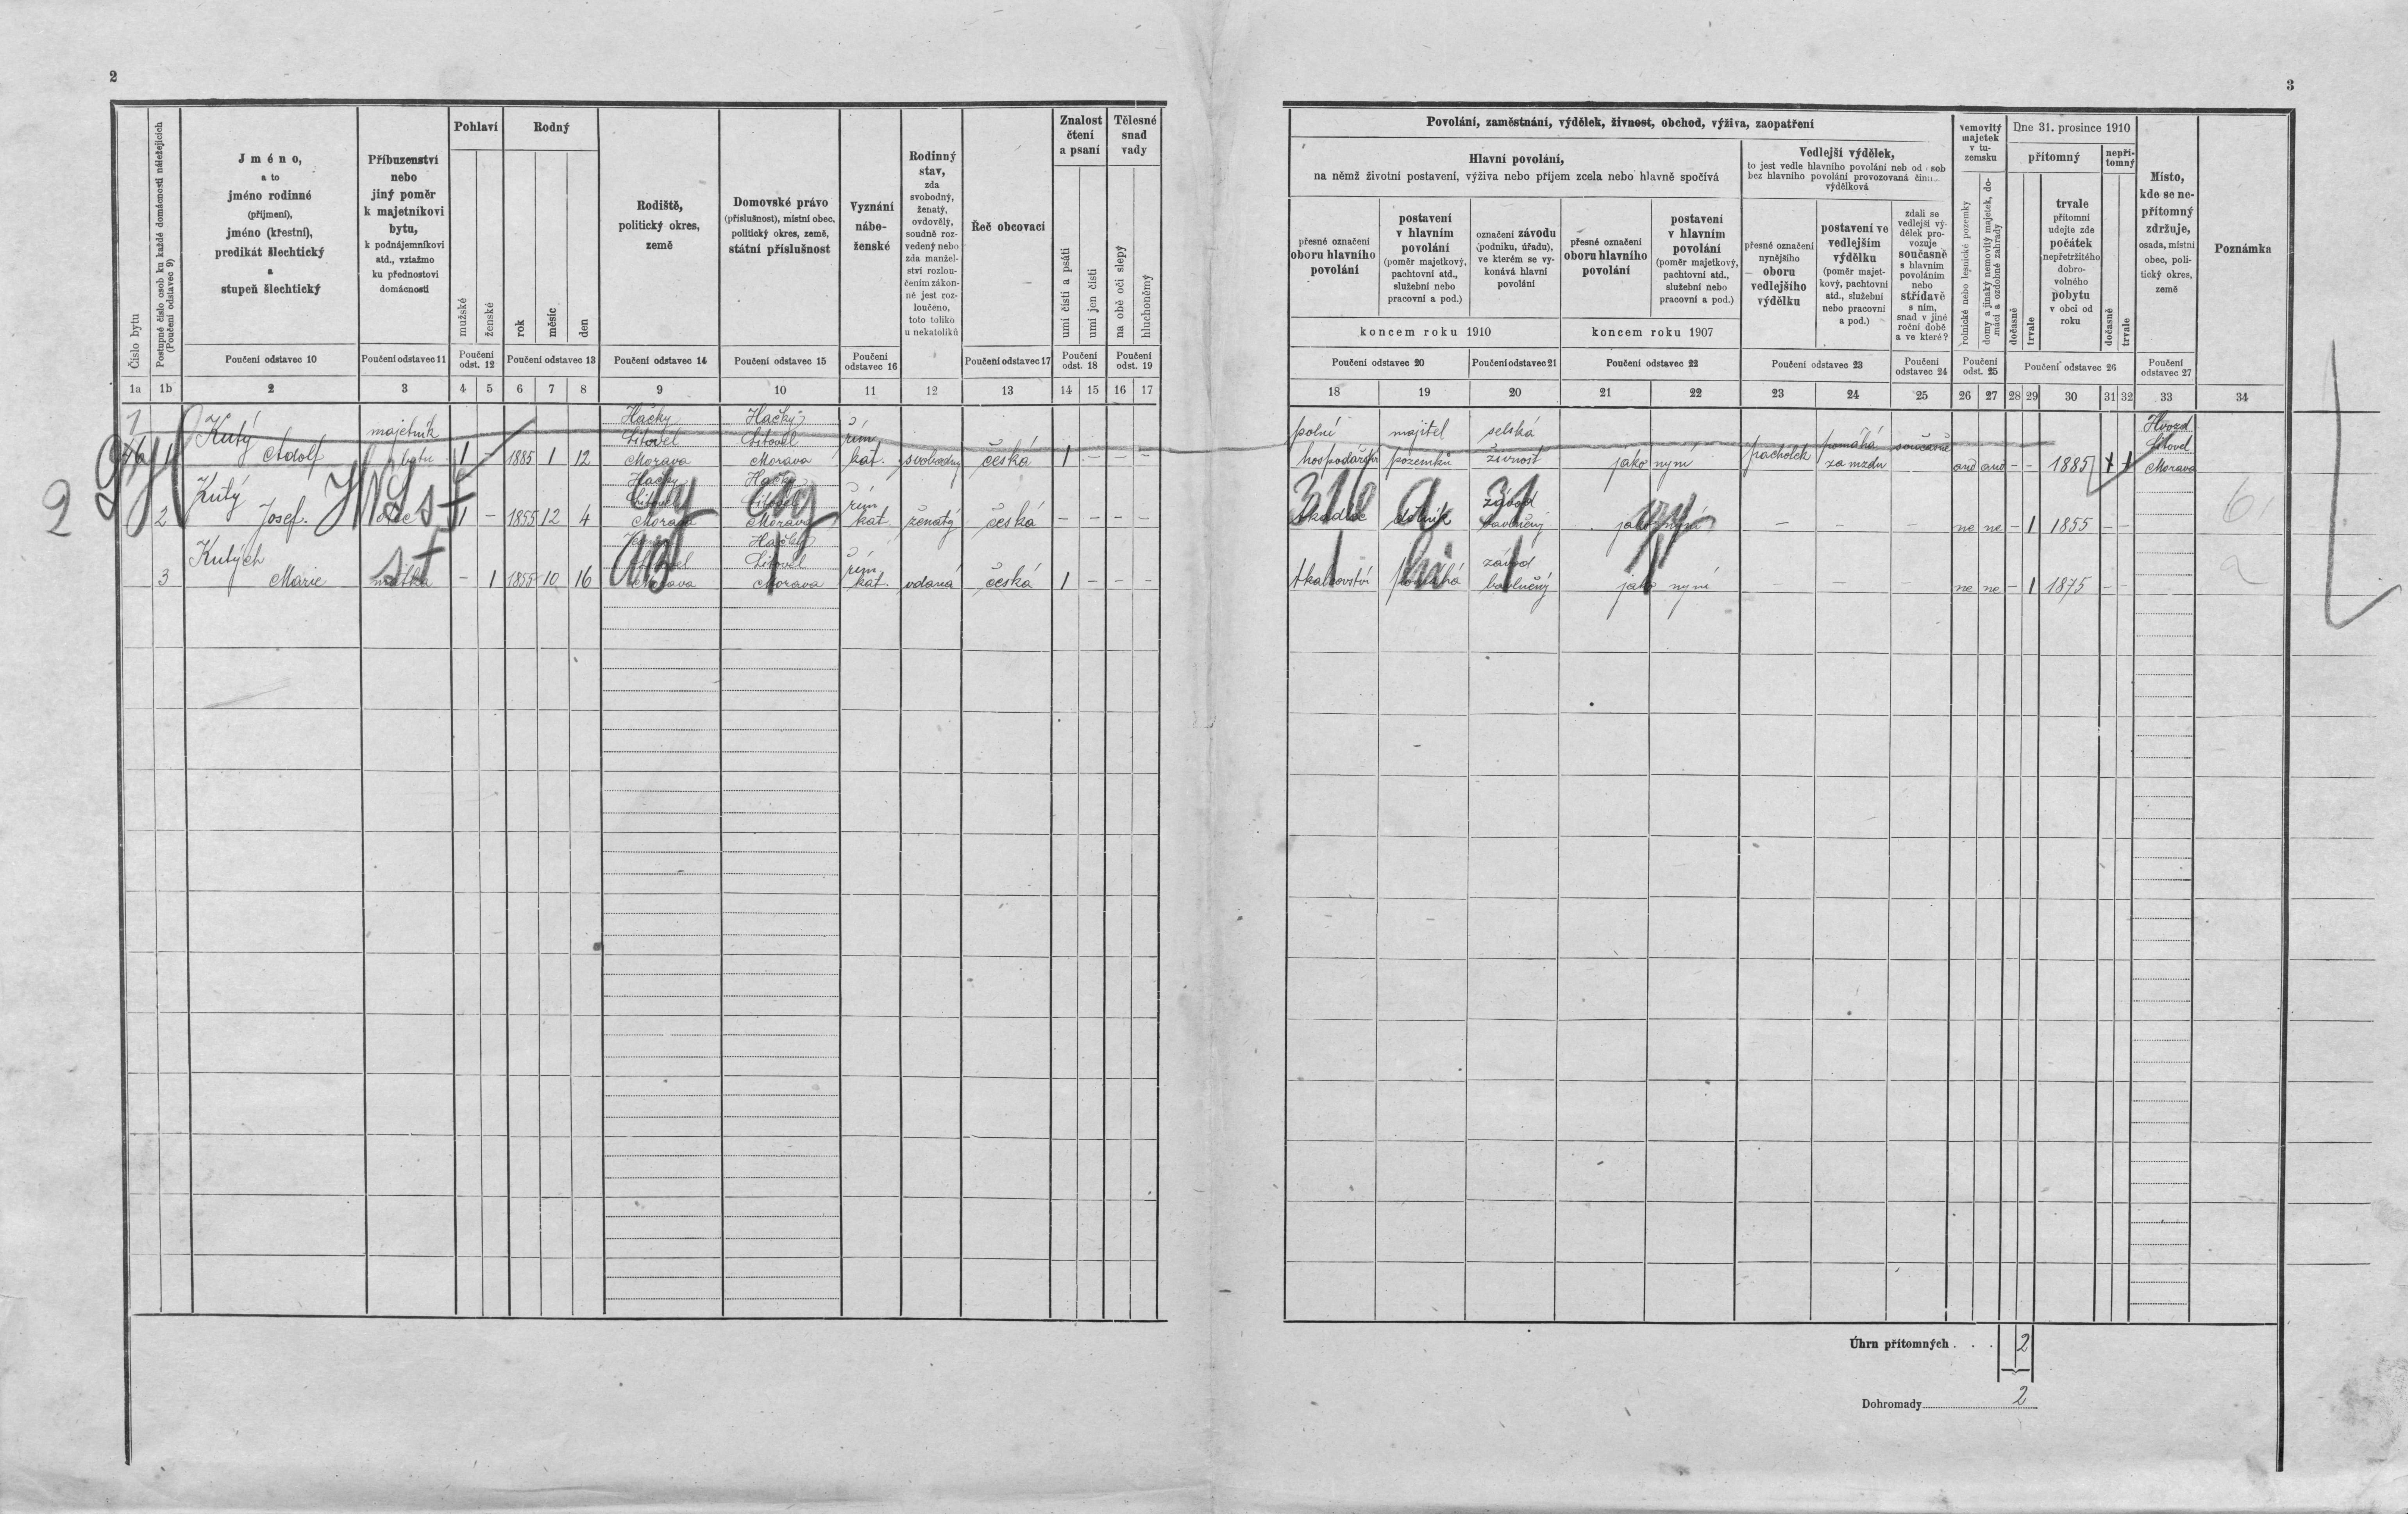 2
Číslo bytu
Postupné číslo osob ku každé domácnosti náležejících
(Poučení odstavec 9)
Jméno,
a to
jméno rodinné
(příjmení),
jméno (křestní),
predikát šlechtický
a
stupeň šlechtický
Příbuzenství
nebo
jiný poměr
k majetníkovi
bytu,
k podnájemníkovi
atd., vztažmo
ku přednostovi
domácnosti
Pohlaví
mužské
ženské
Rodný
rok
měsíc
den
Rodiště,
politický okres,
země
Domovské právo
(příslušnost), místní obec,
politický okres, země,
státní příslušnost
Vyznání
nábo-
ženské
Rodinný
stav,
zda
svobodný,
ženatý,
ovdovělý,
soudně roz-
vedený nebo
zda manžel-
ství rozlou-
čením zákon-
ně jest roz-
loučeno,
toto toliko
u nekatolíků
Řeč obcovací
Znalost
čtení
a psaní
umí čísti a psáti
umí jen čísti
Tělesné
snad
vady
na obě oči slepý
hluchoněmý
Poučení odstavec 10
Poučení odstavec 11
Poučení
odst. 12
Poučení odstavec 13
Poučení odstavec 14
Poučení odstavec 15
Poučení
odstavec 16
Poučení odstavec 17
Poučení
odst. 18
Poučení
odst. 19
1a 1b 2 3 4 5 6 7 8 9 10 11 12 13 14 15 16 17
Kutý
Adolf
majetník
bytu
1 - 1885 1 12
Hačky
Litovel
Morava
Hačky
Litovel
Morava
řím.
kat.
svobodný
česká
1 - - -
2
Kutý
Josef.
1 - 1855 12 4
Hačky
Litovel
Morava
Hačky
Litovel
Morava
řím
kat.
ženatý
česká
- - - -
3
Kutých
Marie
matka
- 1 1855 10 16
Litovel
Morava
Hačky
Litovel
Morava
řím.
kat.
vdaná
česká
1 - - -
2
3
Povolání, zaměstnání, výdělek, živnost, obchod, výživa, zaopatření
Hlavní povolání,
na němž životní postavení, výživa nebo příjem zcela nebo hlavně spočívá
přesné označení
oboru hlavního
povolání
postavení
v hlavním
povolání
(poměr majetkový,
pachtovní atd.,
služební nebo
pracovní a pod.)
označení závodu
(podniku, úřadu),
ve kterém se vy-
konává hlavní
povolání
koncem roku 1910
přesné označení
oboru hlavního
povolání
postavení
v hlavním
povolání
(poměr majetkový,
pachtovní atd.,
služební nebo
pracovní a pod.)
koncem roku 1907
Vedlejší výdělek,
to jest vedle hlavního povolání neb od osob
bez hlavního povolání provozovaná činn...
výdělková
přesné označení
nynějšího
oboru
vedlejšího
výdělku
postavení ve
vedlejším
výdělku
(poměr majet-
kový, pachtovní
atd., služební
nebo pracovní
a pod.)
zdali se
vedlejší vý-
dělek pro-
vozuje
současně
s hlavním
povoláním
nebo
střídavě
s ním,
snad v jiné
roční době
a ve které?
Nemovitý
majetek
v tu-
zemsku
rolnické nebo lesnické pozemky
domy a jinaký nemovitý majetek, do-
mácí a ozdobné zahrady
Dne 31. prosince 1910
přítomný
dočasně
trvale
trvale
přítomní
udejte zde
počátek
nepřetržitého
dobro-
volného
pobytu
v obci od
roku
nepří-
tomný
dočasně
trvale
Místo,
kde se ne-
přítomný
zdržuje,
osada, místní
obec, poli-
tický okres,
země
Poznámka
Poučení odstavec 20
Poučení odstavec 21
Poučení odstavec 22
Poučení odstavec 23
Poučení
odstavec 24
Poučení
odst. 25
Poučení odstavec 26
Poučení
odstavec 27
18 19 20 21 22 23 24 25 26 27 28 29 30 31 32 33 34
polní
hospodářství
majitel
pozemků
selská
živnost
jako nyní
pacholek
pomáhá
za mzdu
současně
ano ano - - 1885
Hvozd
Litovel
Morava
tkadlec
dělník
závod
bavlněný
jako nyní
- - -
ne ne - 1 1855 - -
tkalcovství
pomáhá
závod
bavlněný
jako nyní
- - -
ne ne - 1 1875 - -
Úhrn přítomných . . . 2
Dohromady 2